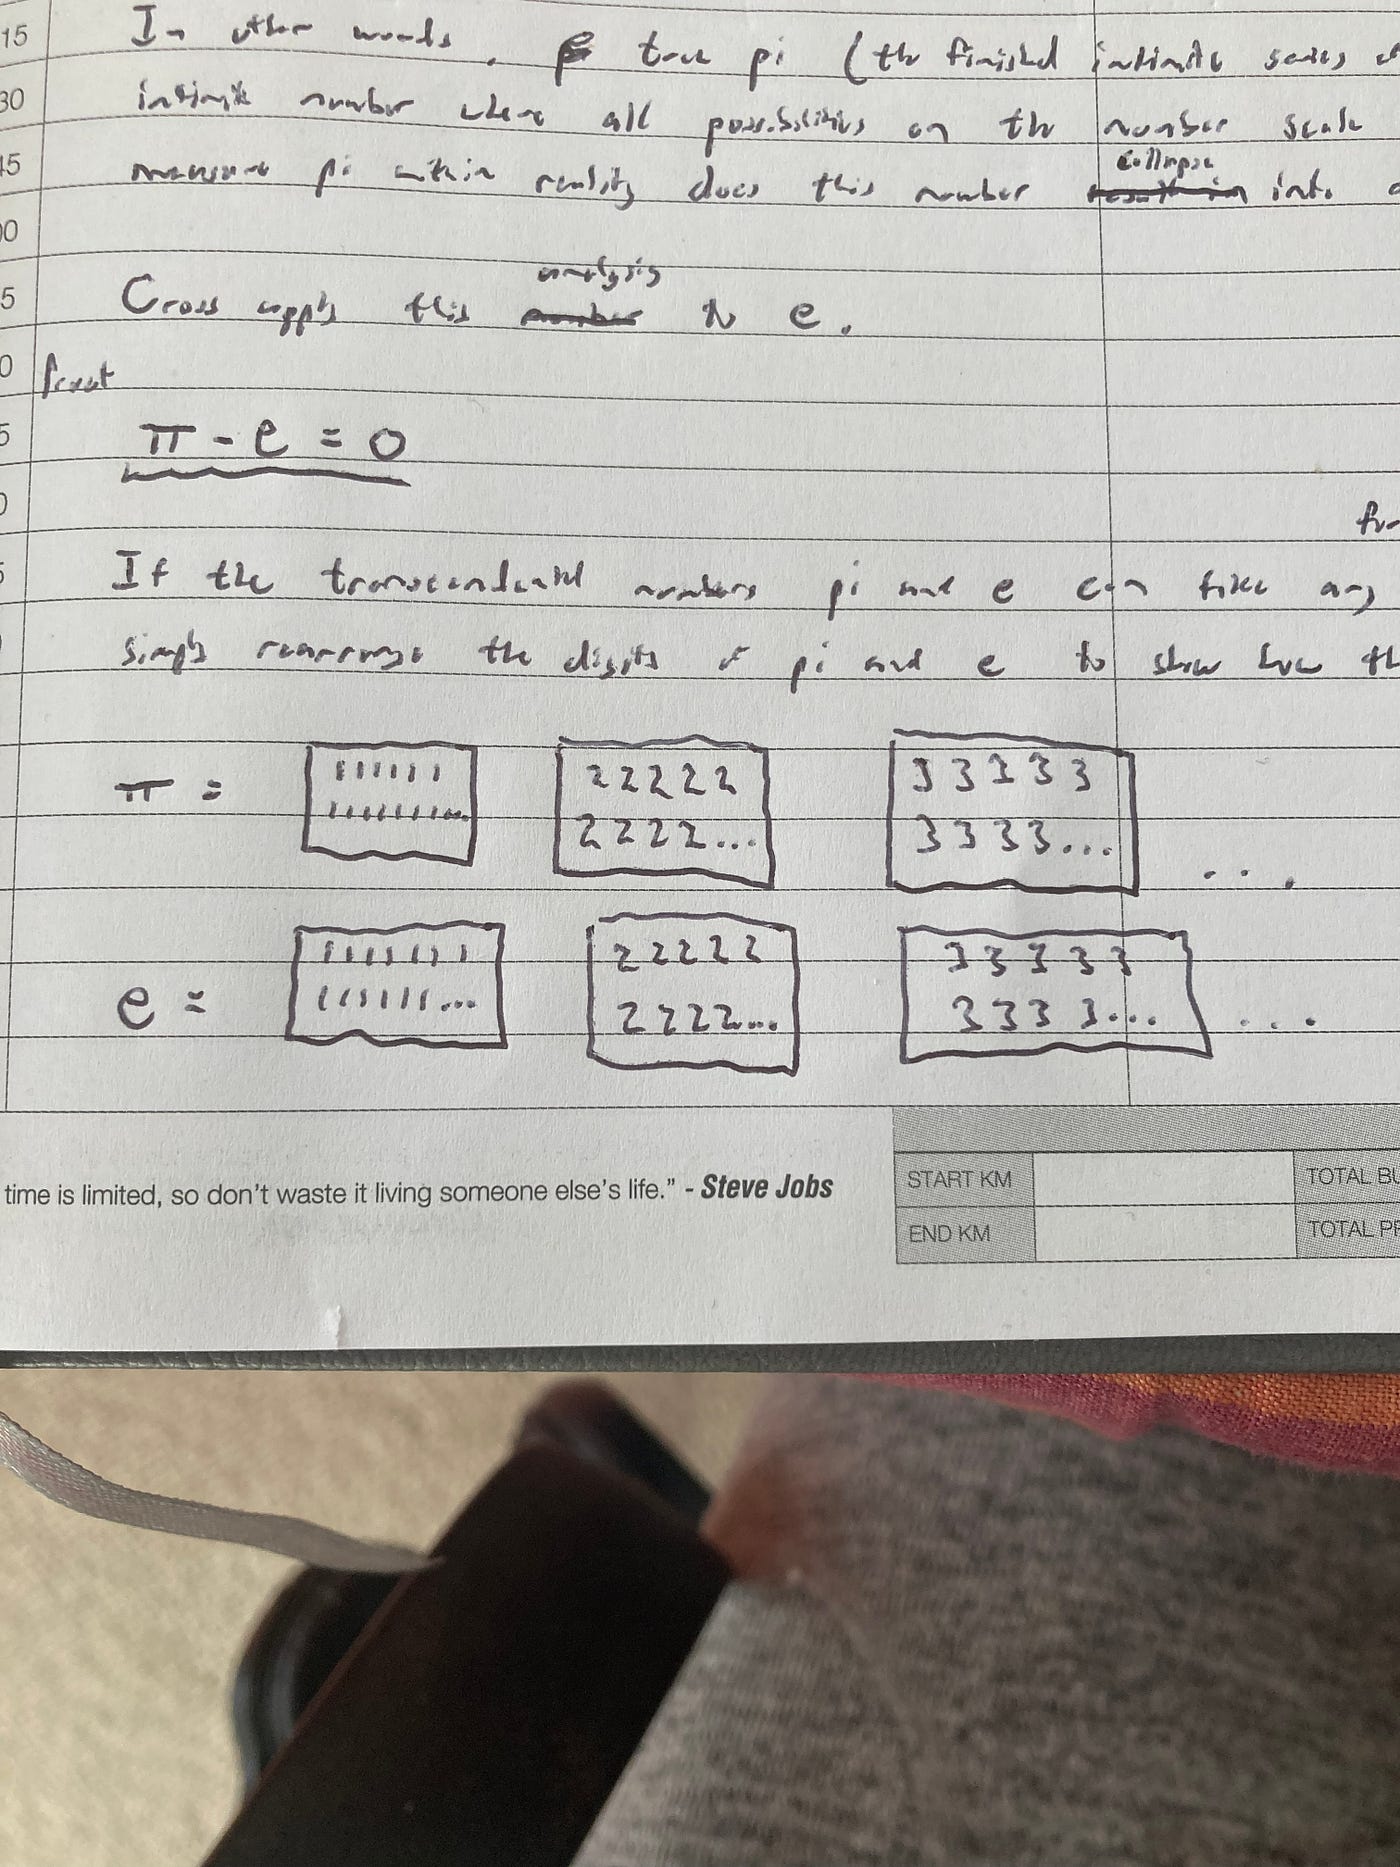 15 In other words, true pi (the finished infinite series of
30 infinite number where all possibilities on the number scale
45 measure pi within reality does this number collapse into
00
5 Cross apply this analysis to e.
0 Proof
5 π - e = 0
0
5 If the transcendental numbers pi and e can take any
simply rearrange the digits of pi and e to show how th
π = 111111 22222 33333
11111111... 2222... 3333... ...
e = 1111111 22222 33333
1111111... 2222... 3333... ...
time is limited, so don't waste it living someone else's life." - Steve Jobs
START KM TOTAL BU
END KM TOTAL PR